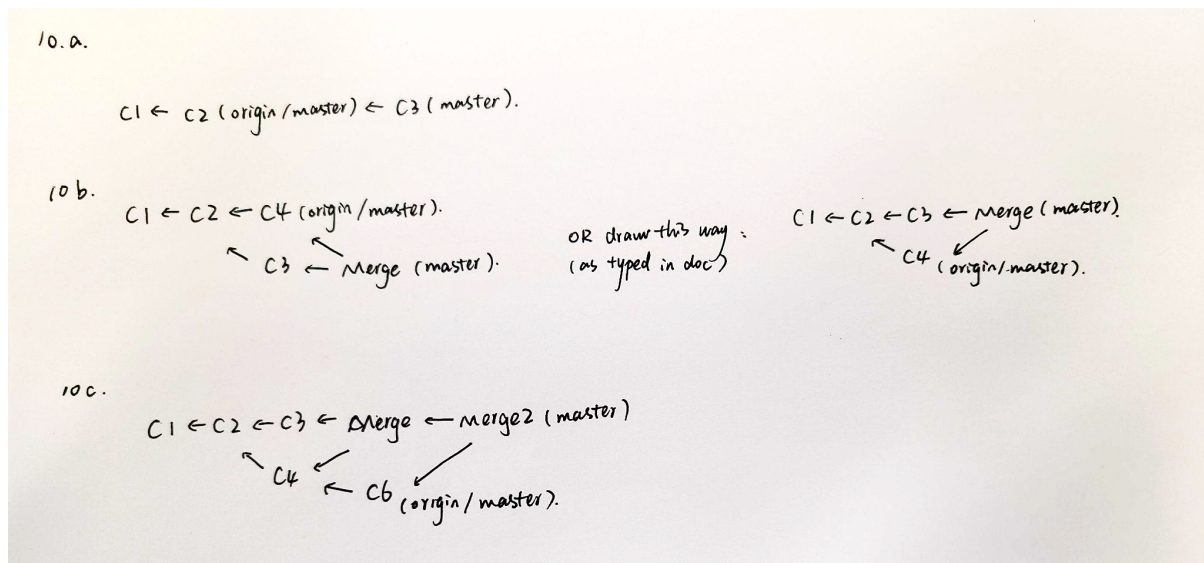 10.a.
C1 ← C2 (origin/master) ← C3 (master).
10b.
C1 ← C2 ← C4 (origin/master).
C3 ← Merge (master).
OR draw this way:
(as typed in doc)
C1 ← C2 ← C3 ← Merge (master).
C4 (origin/master).
10c.
C1 ← C2 ← C3 ← Merge ← Merge2 (master)
C4 ← C6 (origin/master).